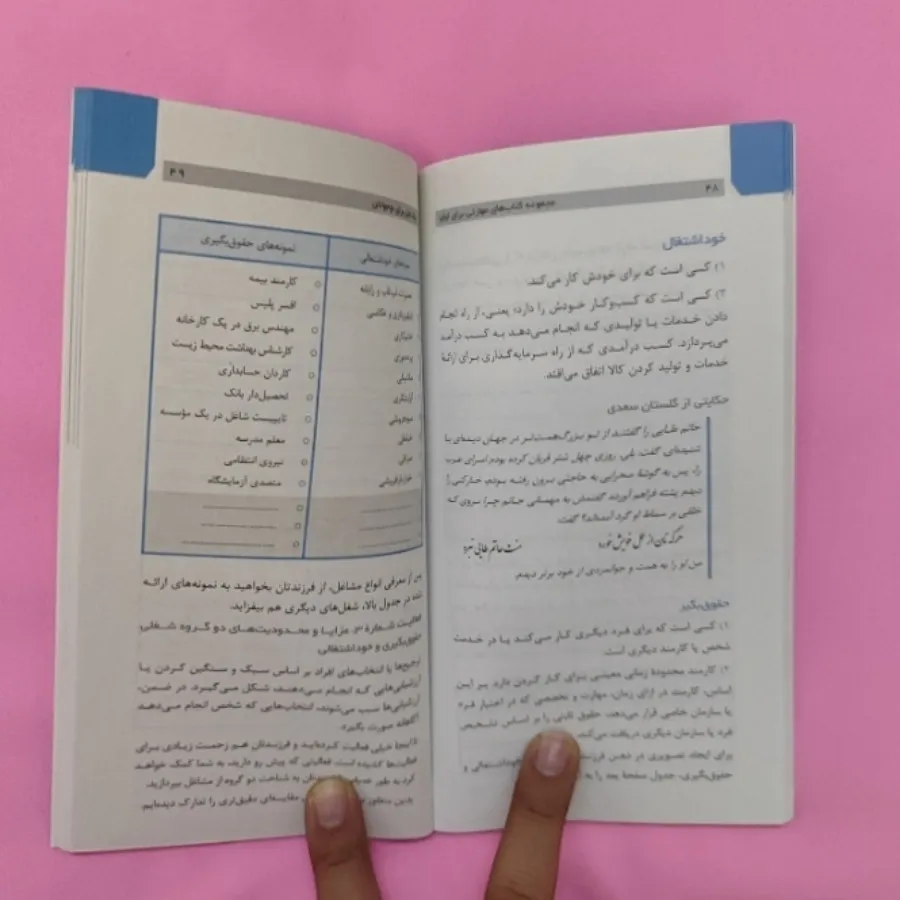 ۴۸
مجموعه کتاب‌های مهارتی برای
خوداشتغال
۱) کسی است که برای خودش کار می‌کند.
۲) کسی است که کسب‌وکار خودش را دارد؛ یعنی، از راه انجام
دادن خدمات یا تولیدی که انجام می‌دهد به کسب درآمد
می‌پردازد. کسب درآمدی که از راه سرمایه‌گذاری برای ارائهٔ
خدمات و تولید کردن کالا اتفاق می‌افتد.
حکایتی از گلستان سعدی
حاتم طایی را گفتند از تو بزرگ‌همت‌تر در جهان دیده‌ای یا
شنیده‌ای گفت، بلی. روزی چهل شتر قربان کرده بودم امرای عرب
را، پس به گوشهٔ صحرایی به حاجتی برون رفته بودم، خارکنی را
دیدم پشته فراهم آورده. گفتمش به مهمانی حاتم چرا نروی که
خلقی بر سماط او گرد آمده‌اند؟ گفت،
هرکه نان از عمل خویش خورد منت حاتم طایی نبرد
من او را به همت و جوانمردی از خود برتر دیدم.
حقوق‌بگیر
۱) کسی است که برای فرد دیگری کار می‌کند یا در خدمت
شخص یا کارمند دیگری است.
۲) کارمند محدودهٔ زمانی معینی برای کار کردن دارد. بر این
اساس، کارمند در ازای زمان، مهارت و تخصصی که در اختیار فرد
یا سازمان خاصی قرار می‌دهد، حقوق ثابتی را بر اساس تشخیص
فرد یا سازمان دیگری دریافت می‌کند.
برای ایجاد تصویری در ذهن خوداشتغالی و
حقوق‌بگیری، جدول صفحهٔ بعد را به
۴۹
نمونه‌های حقوق‌بگیری
خوداشتغالی
کارمند بیمه
افسر پلیس
فیلم‌برداری و عکاسی
مهندس برق در یک کارخانه
کارشناس بهداشت محیط زیست
کاردان حسابداری
تحصیل‌دار بانک
آرایشگری
تایپیست شاغل در یک مؤسسه
معلم مدرسه
خیاطی
نیروی انتظامی
متصدی آزمایشگاه
از معرفی انواع مشاغل، از فرزندتان بخواهید به نمونه‌های ارائه
در جدول بالا، شغل‌های دیگری هم بیفزاید.
فعالیت شمارهٔ ۳. مزایا و محدودیت‌های دو گروه شغلی
حقوق‌بگیری و خوداشتغالی
ترجیح‌ها یا انتخاب‌های افراد بر اساس سبک و سنگین کردن یا
ارزشیابی‌هایی که انجام می‌دهند، شکل می‌گیرد. در ضمن،
ارزشیابی‌ها سبب می‌شوند، انتخاب‌هایی که شخص انجام می‌دهد
آگاهانه صورت بگیرد.
تا اینجا خیلی فعالیت کرده‌اید و فرزندتان هم زحمت زیادی برای
فعالیت‌ها کشیده است. فعالیتی که پیش رو دارید، به شما کمک خواهد
کرد به طور به شناخت دو گروه از مشاغل بپردازید.
بدین منظور مقایسه‌ای دقیق‌تری را تدارک دیده‌ایم.